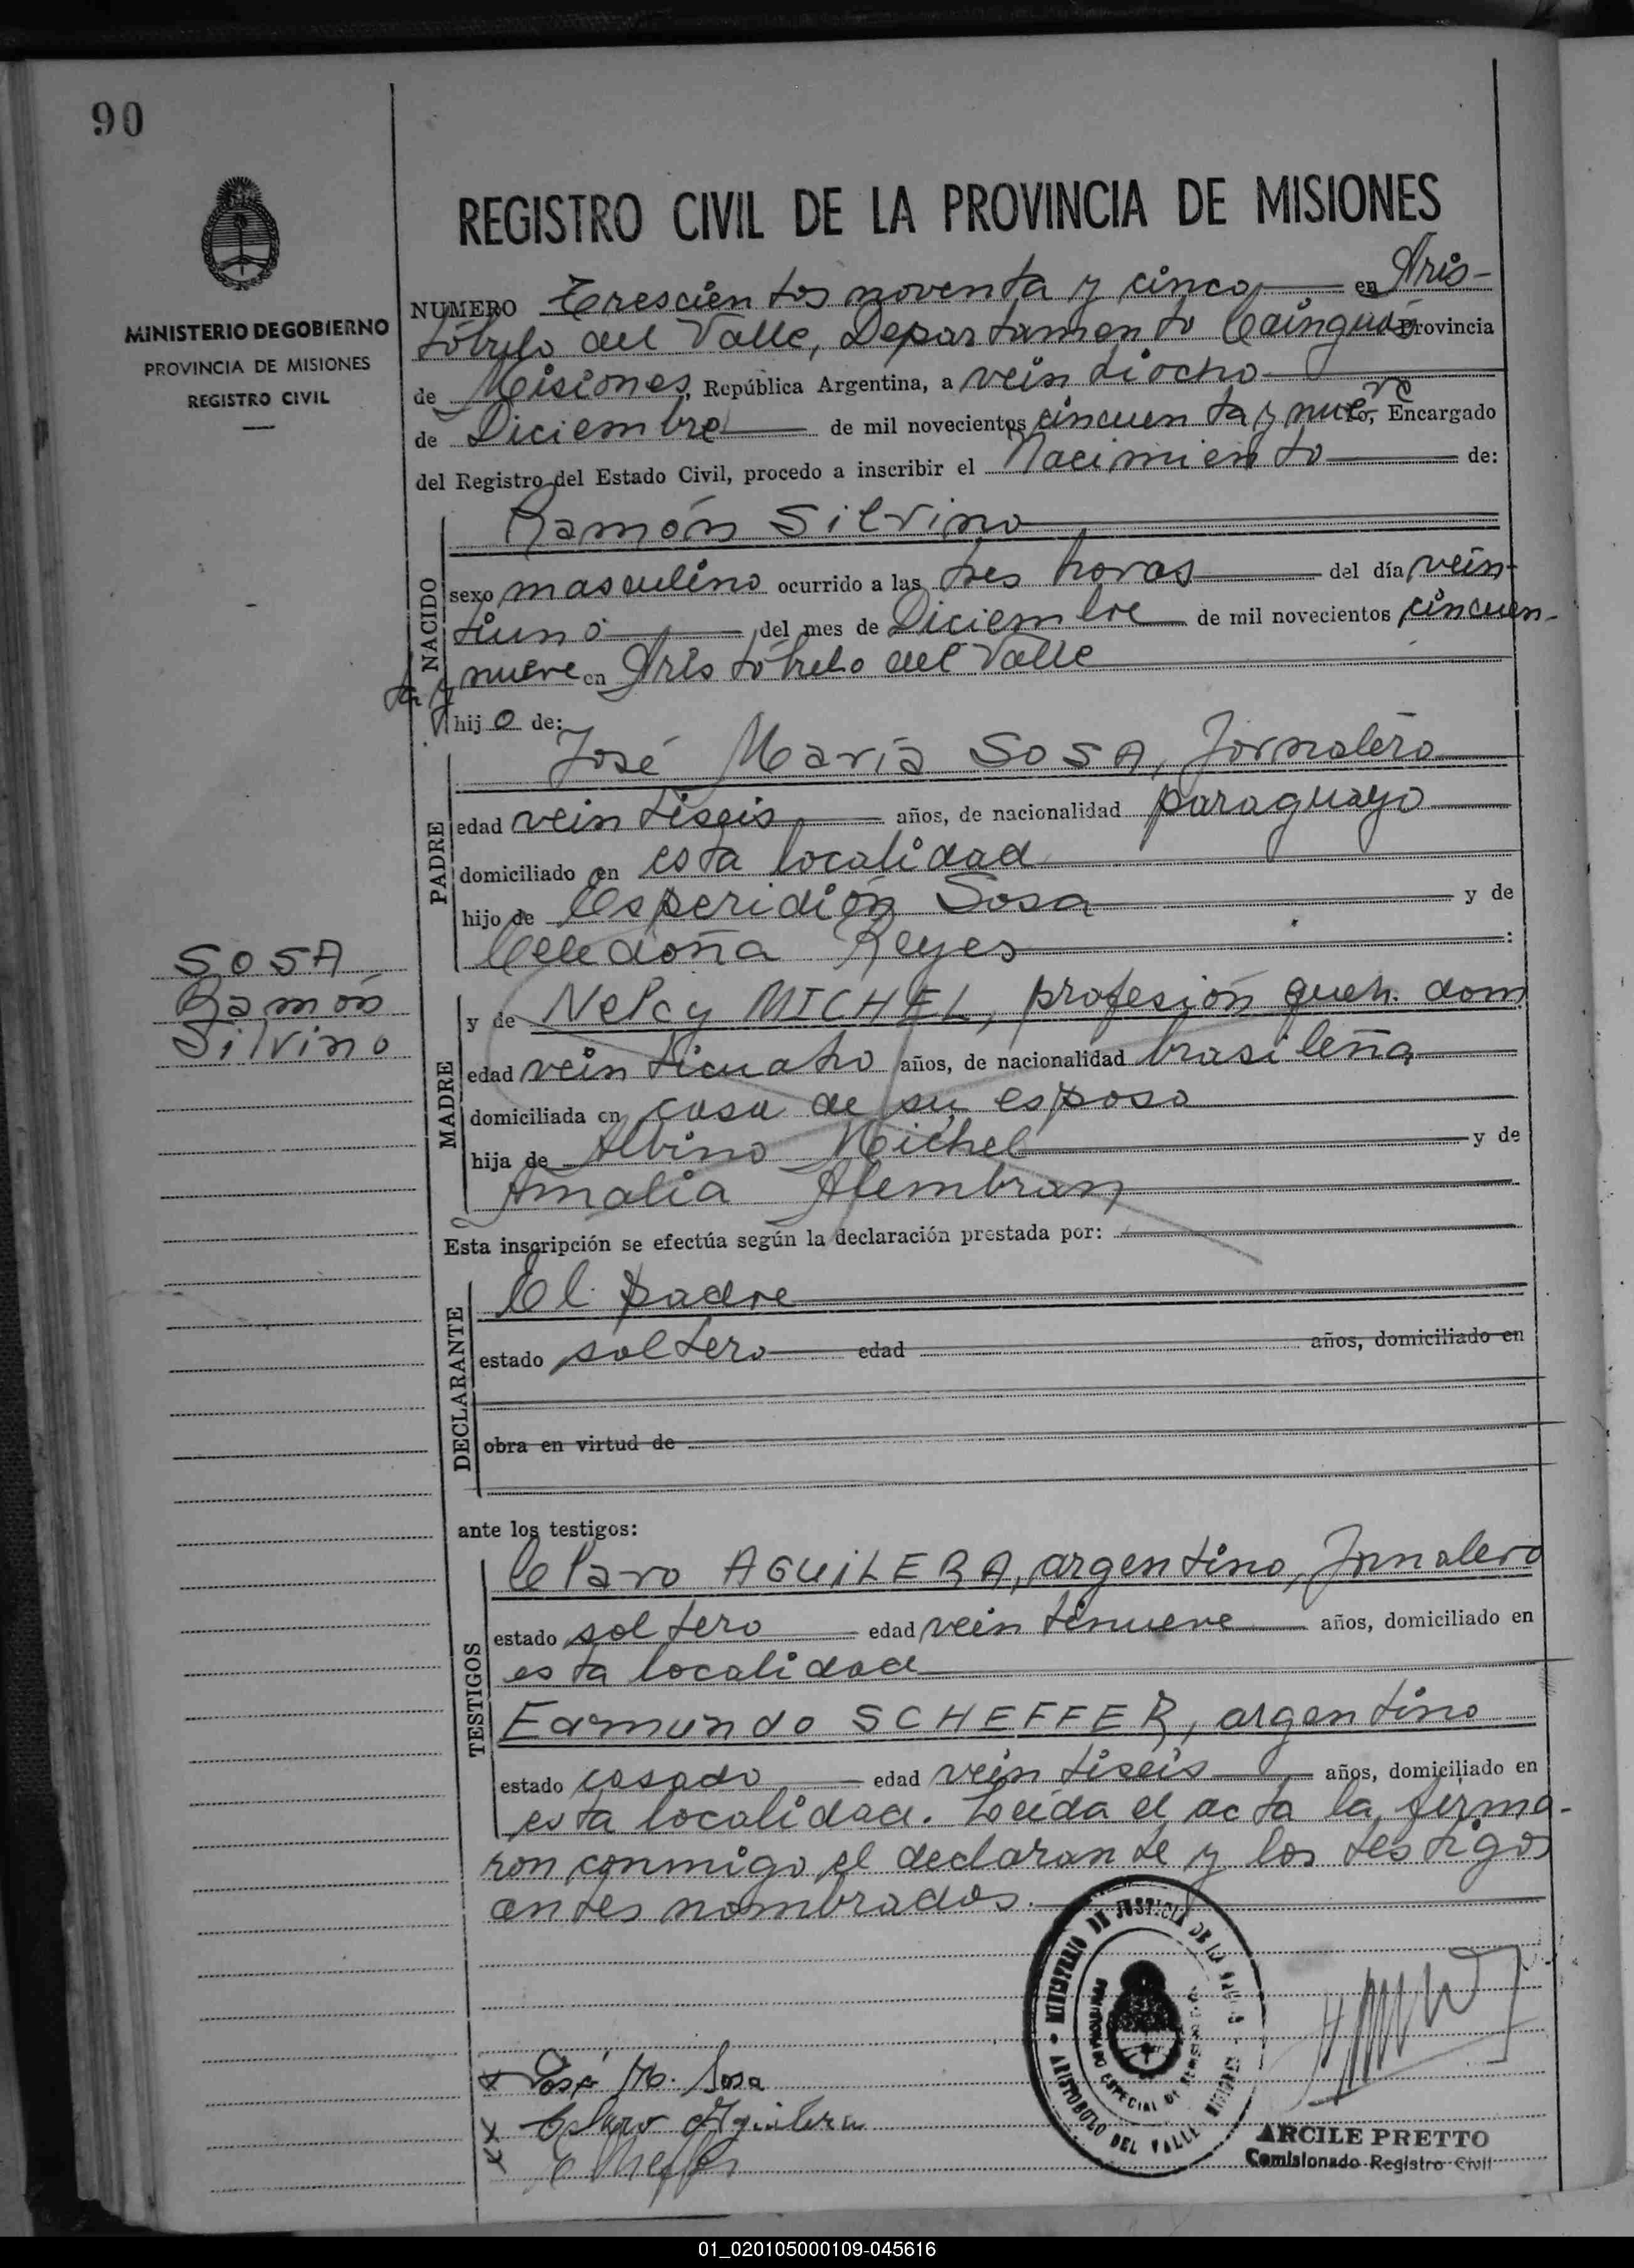 90
MINISTERIO DE GOBIERNO
PROVINCIA DE MISIONES
REGISTRO CIVIL
REGISTRO CIVIL DE LA PROVINCIA DE MISIONES
NUMERO Trescientos noventa y cinco en Aris-
tóbulo del Valle, Departamento Cainguás Provincia
de Misiones, República Argentina, a veintiocho
de Diciembre de mil novecientos cincuenta y nueve, Encargado
del Registro del Estado Civil, procedo a inscribir el Nacimiento de:
NACIDO
Ramón Silvino
sexo masculino ocurrido a las tres horas del día vein-
tiuno del mes de Diciembre de mil novecientos cincuen-
ta y nueve en Aristóbulo del Valle
hijo de:
PADRE
José María SOSA, Jornalero
edad veintiseis años, de nacionalidad paraguayo
domiciliado en esta localidad
hijo de Esperidión Sosa y de
Celedoña Reyes :
SOSA
Ramón
Silvino
MADRE
y de Nelcy MICHEL, profesión queh. dom
edad veinticuatro años, de nacionalidad brasileña
domiciliada en casa de su esposo
hija de Albino Michel y de
Amalia Alembran
Esta inscripción se efectúa según la declaración prestada por:
DECLARANTE
El padre
estado soltero edad años, domiciliado en
obra en virtud de
ante los testigos:
TESTIGOS
Claro AGUILERA, argentino, Jornalero
estado soltero edad veintinueve años, domiciliado en
esta localidad
Edmundo SCHEFFER, argentino
estado casado edad veintiseis años, domiciliado en
esta localidad. Leída el acta la firma-
ron conmigo el declarante y los testigos
antes nombrados.
MINISTERIO DE JUSTICIA DE LA
ARISTOBULO DEL VALLE
ESPECIAL
x José Ma. Sosa
x Claro Aguilera
x E Sheffer
ARCILE PRETTO
Comisionado Registro Civil
01_020105000109-045616